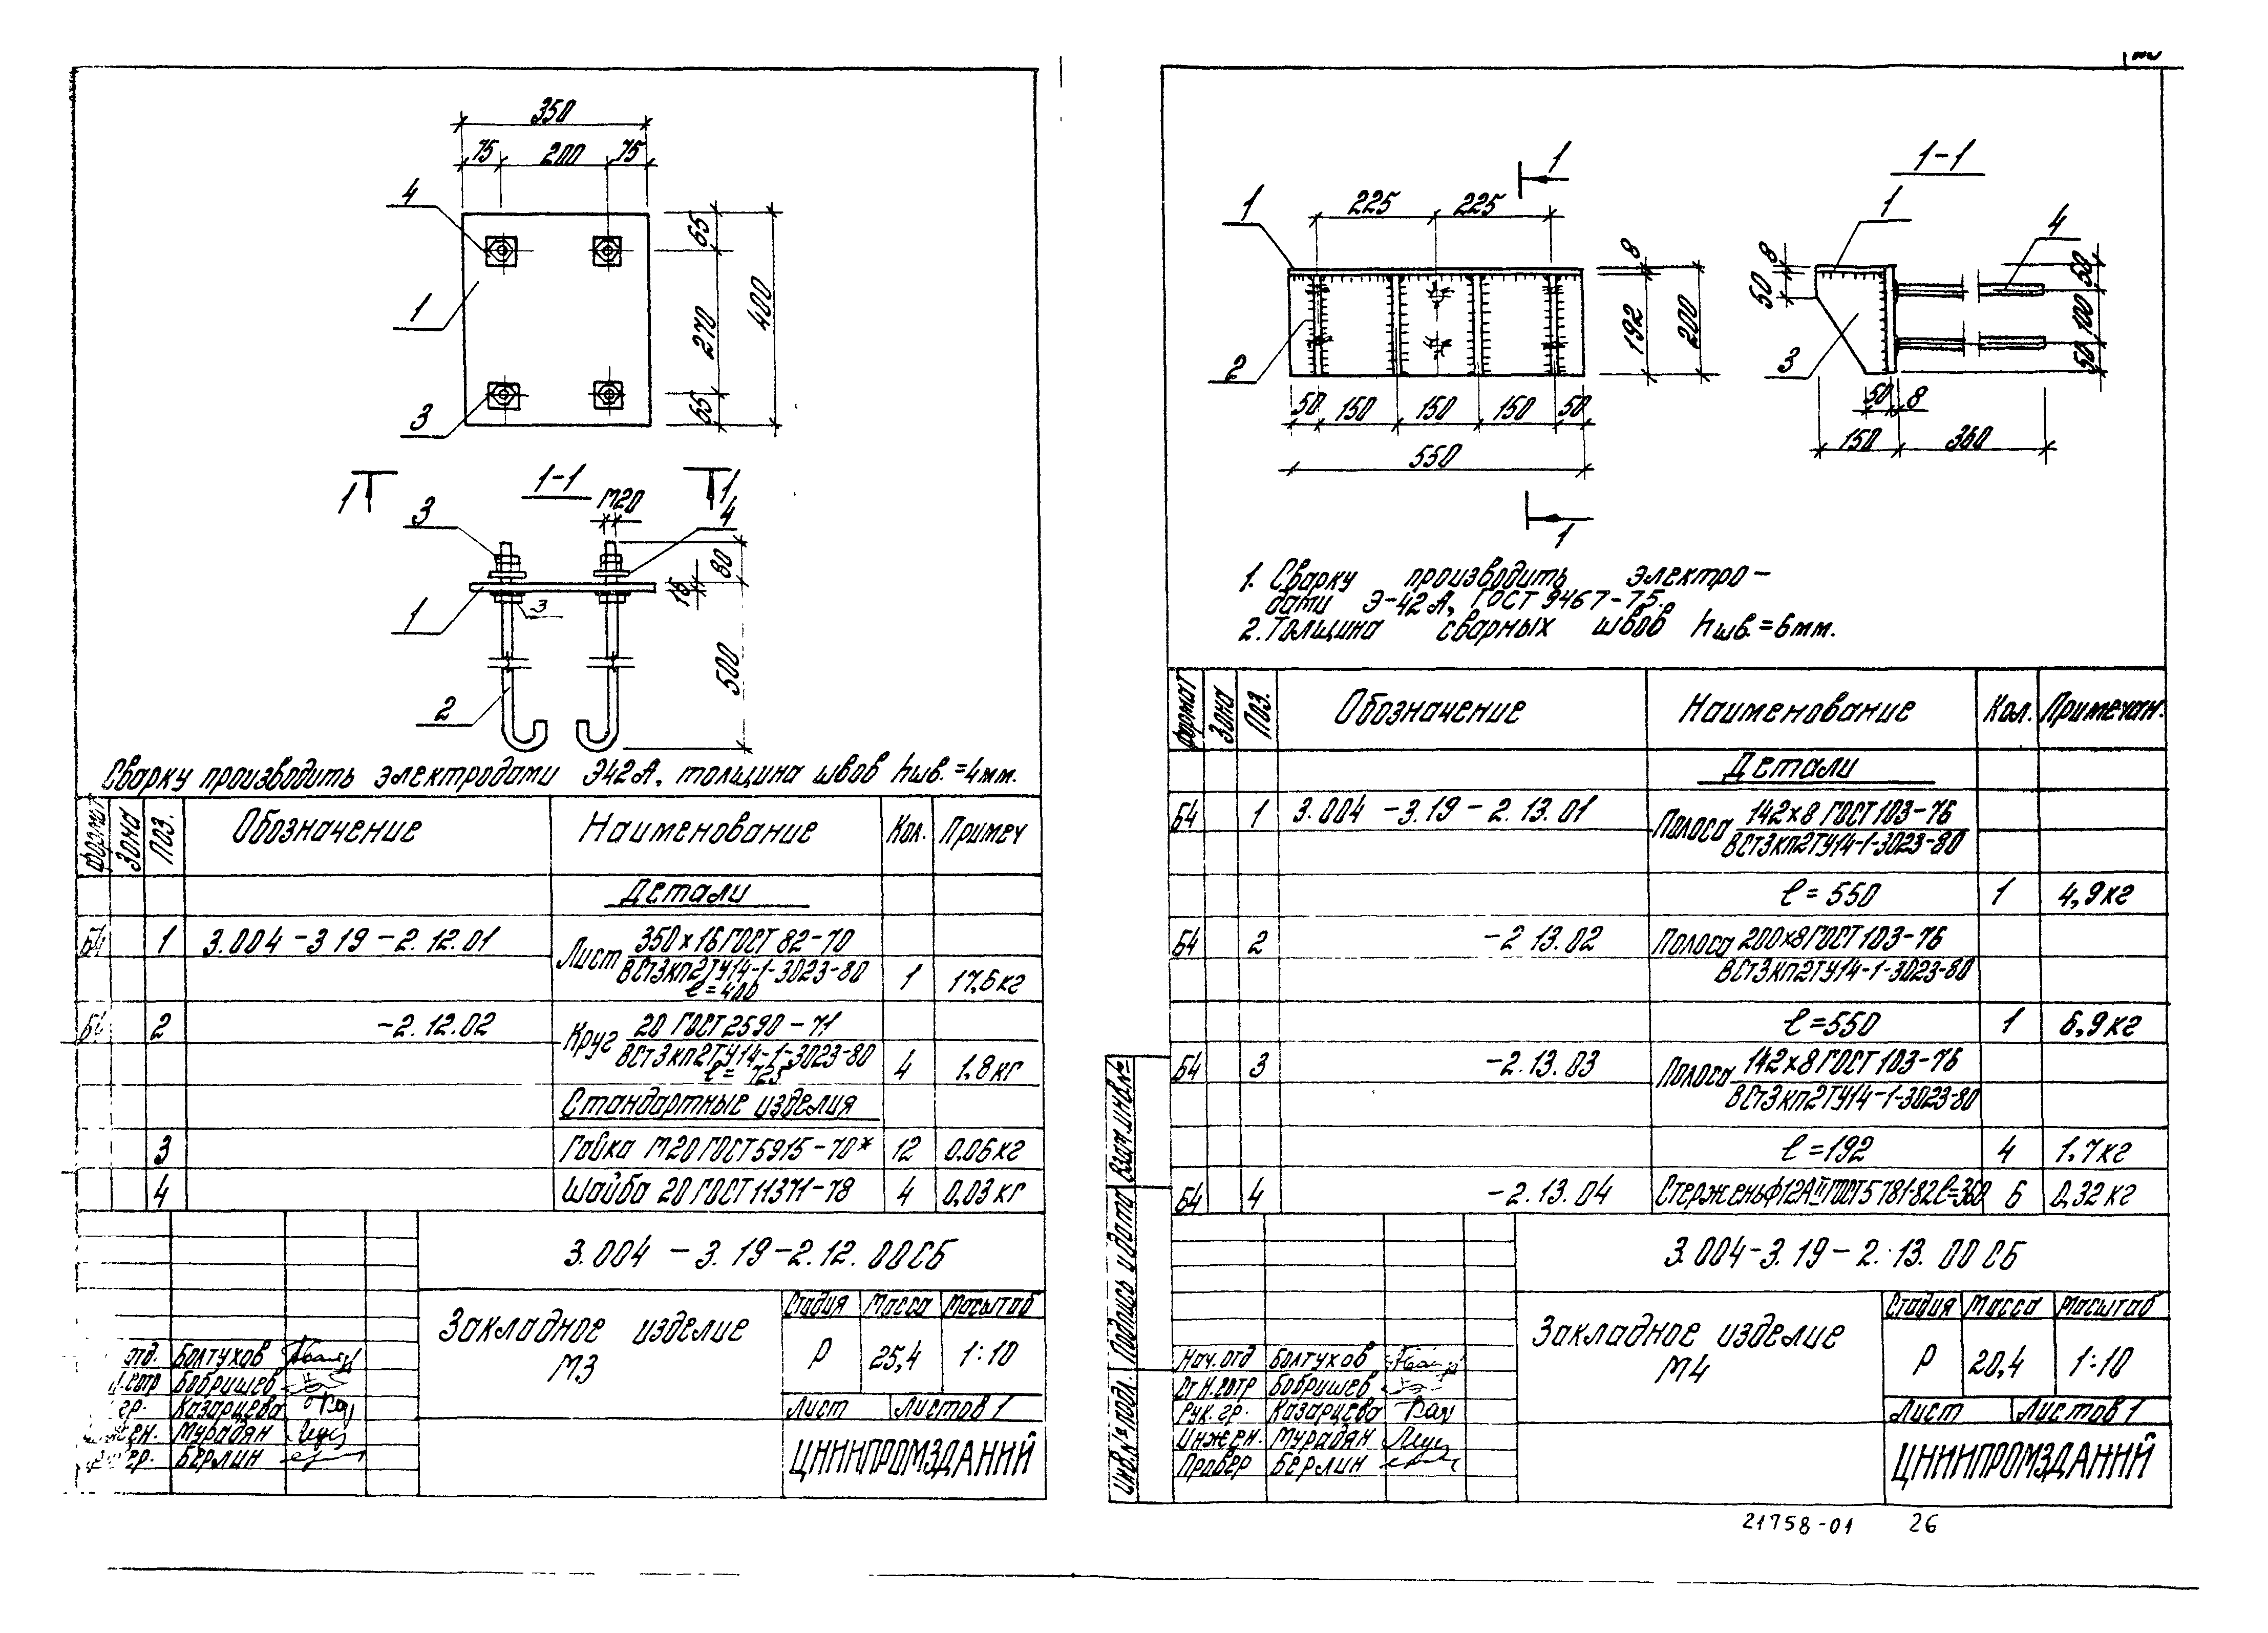 350
75 200 75
4
65
1
270
400
3
65
1 1-1 1
М20
3 4
80
16
1 3
500
2
Сварку производить электродами Э42А, толщина швов hшв.=4мм.
формат Зона Поз. Обозначение Наименование Кол. Примеч
Детали
Б4 1 3.004-3 19-2.12.01 Лист 350х16 ГОСТ 82-70
ВСт3кп2ТУ14-1-3023-80
ℓ=400 1 17,6кг
Б4 2 -2.12.02 Круг 20 ГОСТ 2590-71
ВСт3кп2ТУ14-1-3023-80
ℓ= 725 4 1.8кг
Стандартные изделия
3 Гайка М20 ГОСТ5915-70* 12 0.06кг
4 Шайба 20 ГОСТ 11371-78 4 0,03кг
3.004-3.19-2.12.00СБ
Закладное изделие
М3
Стадия Масса Масштаб
Р 25,4 1:10
Лист Листов 1
ЦНИИПРОМЗДАНИЙ
отд. Болтухов
Бобришев
гр. Казарцева
Мурадян
Берлин
1
1-1
1 225 225 1 4
8 8
50
192 200
50 100 50
2 3
50 150 150 150 50
550
50 8
150 360
1
1. Сварку производить электро-
дати Э-42А, ГОСТ 9467-75.
2. Толщина сварных швов hшв.=6мм.
формат Зона Поз. Обозначение Наименование Кол. Примечан.
Детали
Б4 1 3.004-3.19-2.13.01 Полоса 142х8 ГОСТ 103-76
ВСт3кп2ТУ14-1-3023-80
ℓ=550 1 4,9кг
Б4 2 -2 13.02 Полоса 200х8ГОСТ 103-76
ВСт3кп2ТУ14-1-3023-80
ℓ=550 1 6,9кг
Б4 3 -2.13.03 Полоса 142х8ГОСТ 103-76
ВСт3кп2ТУ14-1-3023-80
ℓ=192 4 1.7кг
Б4 4 -2.13.04 Стерженьф12АIIIГОСТ5781-82ℓ=360 6 0,32кг
3.004-3.19-2.13.00СБ
Закладное изделие
М4
Стадия Масса Масштаб
Р 20,4 1:10
Лист Листов 1
ЦНИИПРОМЗДАНИЙ
Нач.отд Болтухов
Бобришев
Рук.гр. Казарцева
Инжен. Мурадян
Провер Берлин
Инв.№ подл. Подпись и дата Взам.инв.№
21758-01 26